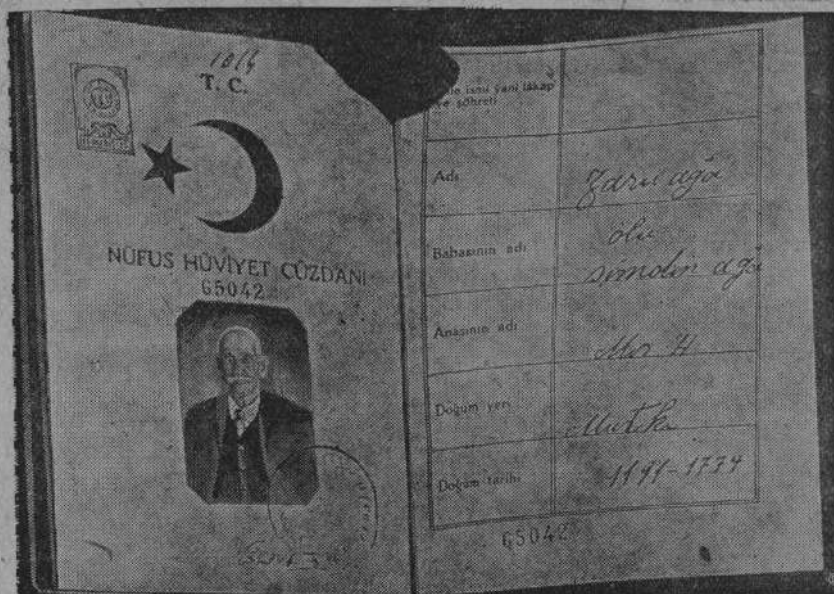 1016
T. C.
NÜFUS HÜVİYET CÜZDANI
65042
ismi yani lâkap
ve şöhreti
Adı
Zaro ağa
Babasının adı
ölü
simdin ağa
Anasının adı
Doğum yeri
Mutki
Doğum tarihi
65042